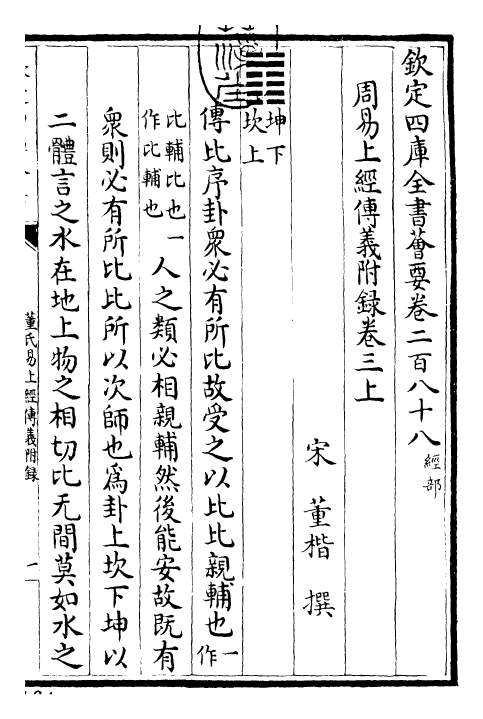 欽定四庫全書薈要卷二百八十八 經部
周易上經傳義附録卷三上
宋 董楷 撰
坤下
坎上
傳比序卦衆必有所比故受之以比比親輔也一作
比輔比也
作比輔也
一人之類必相親輔然後能安故既有
衆則必有所比比所以次師也為卦上坎下坤以
二體言之水在地上物之相切比无間莫如水之
董氏易上經傳義附録
一